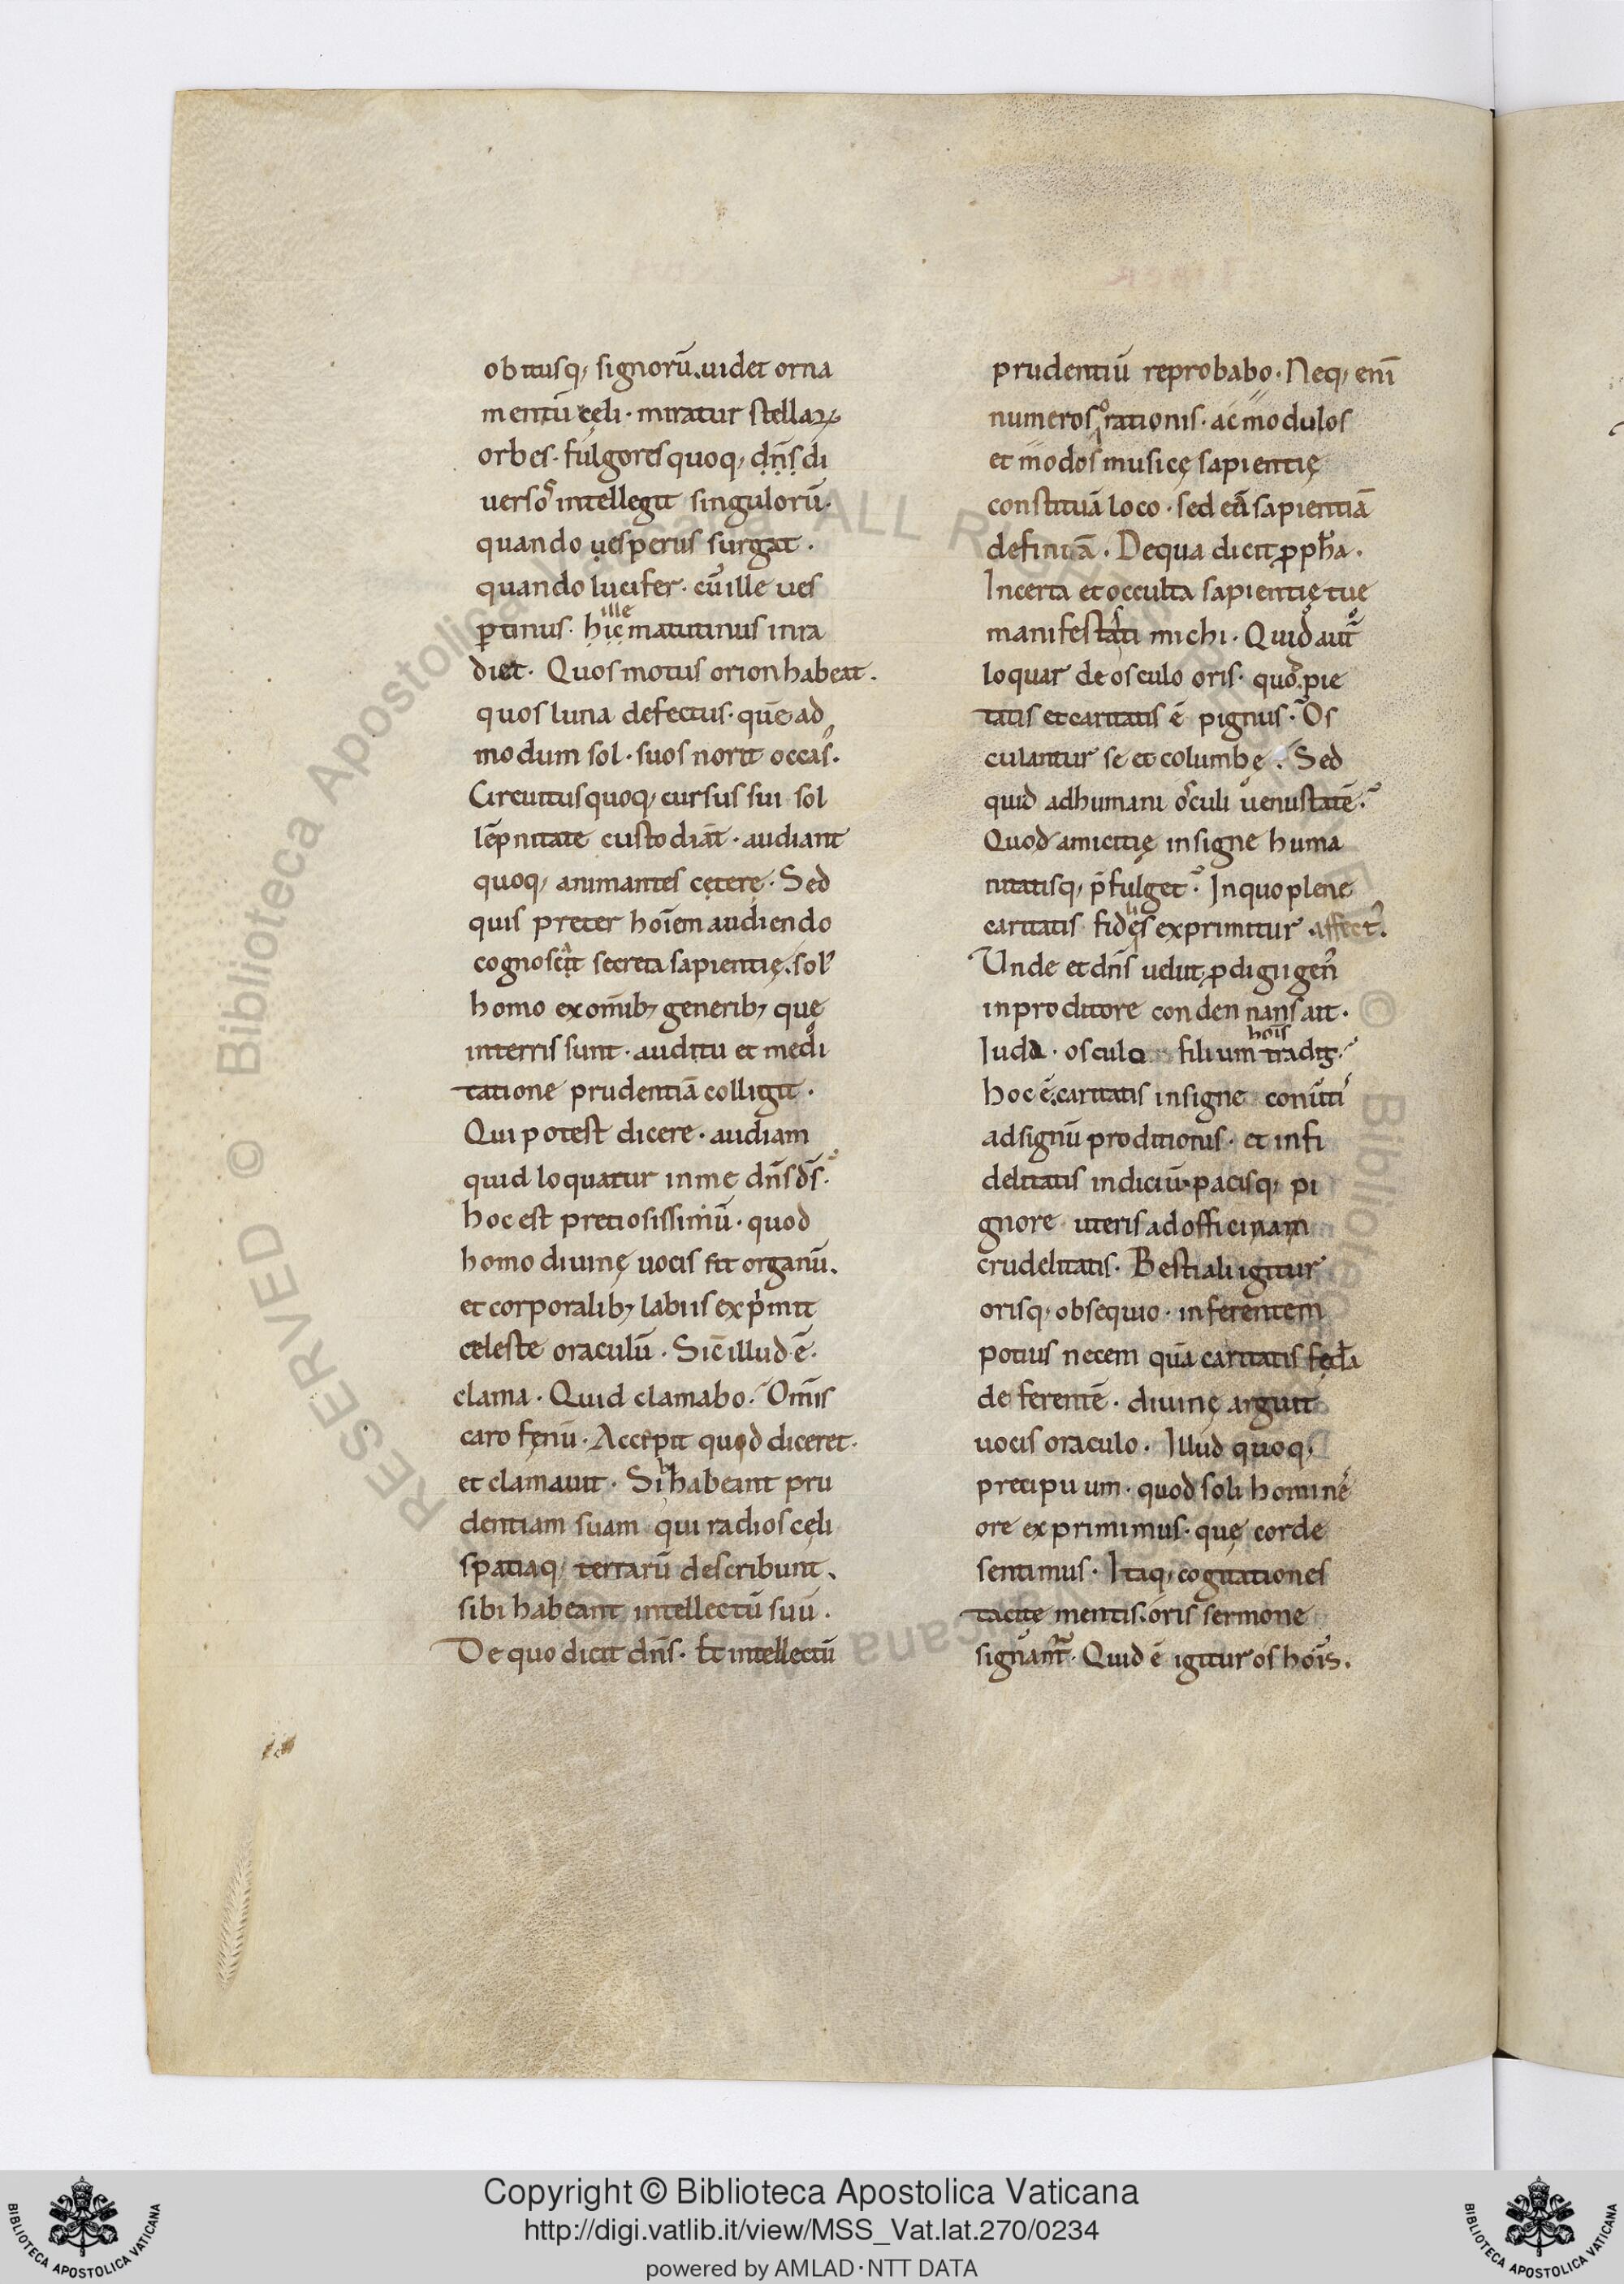 obitusq; signorū. uidet orna
mentū cęli · miratur stellaꝝ
orbes · fulgores quoq; dn̄s di
uersos intellegit singulorū·
quando uesperus surgat ·
quando lucifer · cū ille ues
ꝑtinus · hic ille matutinus inra
diet · Quos motus orion habeat .
quos luna defectus · quē ad
modum sol · suos norit occas᾽ .
Circuitus quoq; cursus sui sol
lēpnitate custodiāt · audiant
quoq; animantes cęterę · Sed
quis preter hoīem audiendo
cognoscit secreta sapientię. sol᾽
homo ex om̄ib; generib; quę
interris sunt · auditu et medi
tatione prudentiā colligit ·
Qui potest dicere · audiam
quid loquatur in me dn̄s ds̄ ·
hoc est preciosissimū · quod
homo diuinę uocis fit organū.
et corporalib; labiis exp̍mit
celeste oraculū · Sic illud ē ·
clama · Quid clamabo · Om̄is
caro fęnū · Accepit quod diceret ·
et clamauit · Sibi habeant pru
dentiam suam qui radios cęli
spatiaq; terrarū describunt .
sibi habeant intellectū suū .
De quo dicit dn̄s · Et intellectū
prudentiū reprobabo · Neq; eni̅
numeros orationis · ac modulos
et modos musicę sapientię
constituā loco · sed eā sapientiā
definiā . De qua dicit ꝓpha .
Incerta et occulta sapientię tuę
manifestasti michi · Quid aut̄
loquar de osculo oris · quod pie
tatis et caritatis ē pignus · Os
culantur se et columbę . Sed
quid ad humani osculi uenustatē ·
Quod amicitię insigne huma
nitatisq; p̄fulget · In quo plene
caritatis fidelis exprimitur affect᾽ .
Unde et dn̄s uelut ꝓdigii gen᾽
in proditore condennans ait ·
Iuda · osculo filium hois tradis ·
hoc ē. caritatis insigne conūti᾽
ad signū proditionis · et infi
delitatis indiciū · pacisq; pi
gnore uteris ad officinam
crudelitatis · Bestiali igitur
orisq; obsequio · inferentem
potius necem quā caritatis fędera
deferentē · diuinę arguit
uocis oraculo · Illud quoq;
precipuum · quod soli homines
ore exprimimus · quę corde
sentimus · Itaq; cogitationes
tacite mentis. oris sermone
signant᾽ · Quid ē igitur os hoīs .
Copyright © Biblioteca Apostolica Vaticana
http://digi.vatlib.it/view/MSS_Vat.lat.270/0234
powered by AMLAD · NTT DATA
BIBLIOTECA APOSTOLICA VATICANA
BIBLIOTECA APOSTOLICA VATICANA